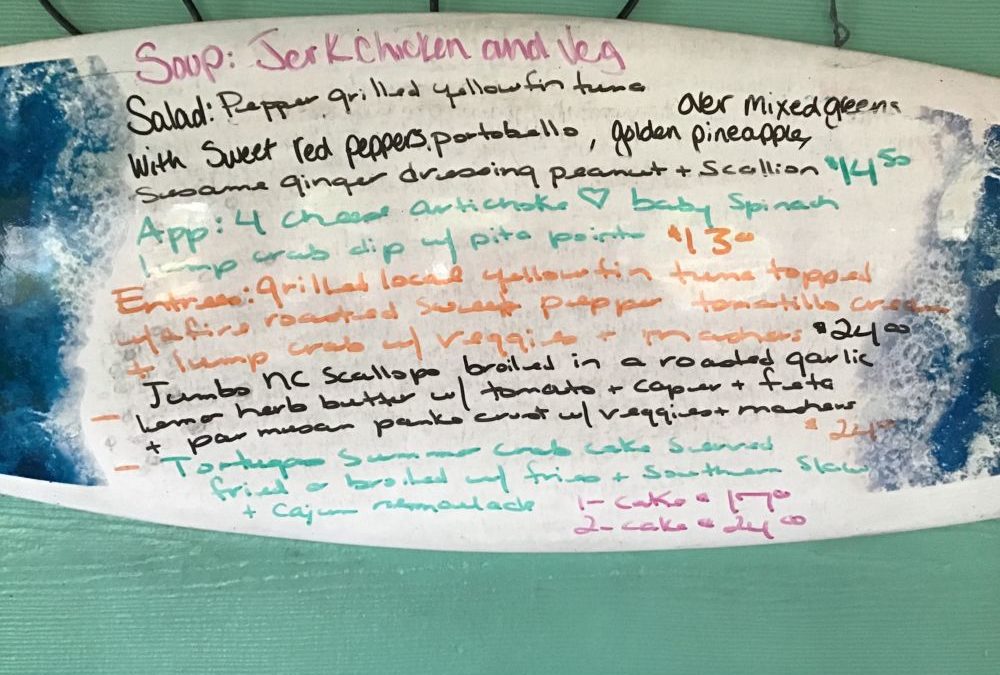 Soup: Jerk Chicken and Veg
Salad: Pepper grilled yellowfin tuna over mixed greens
with Sweet red peppers, portobello, golden pineapple,
Sesame ginger dressing peanut + Scallion $14 50
App: 4 cheese artichoke ♡ baby Spinach
lump crab dip w/ pita points $13 00
Entrees: grilled local yellowfin tuna topped
w/ a fire roasted sweet pepper tomatillo cream
+ lump crab w/ veggies + mashers $24 00
Jumbo NC Scallops broiled in a roasted garlic
- Lemon herb butter w/ tomato + caper + feta
+ parmesan panko crust w/ veggies + mashers
$24 00
- Tortugas Summer crab cake Served
fried or broiled w/ fries + Southern Slaw
+ Cajun remoulade 1- cake 17 00
2- cake 24 00